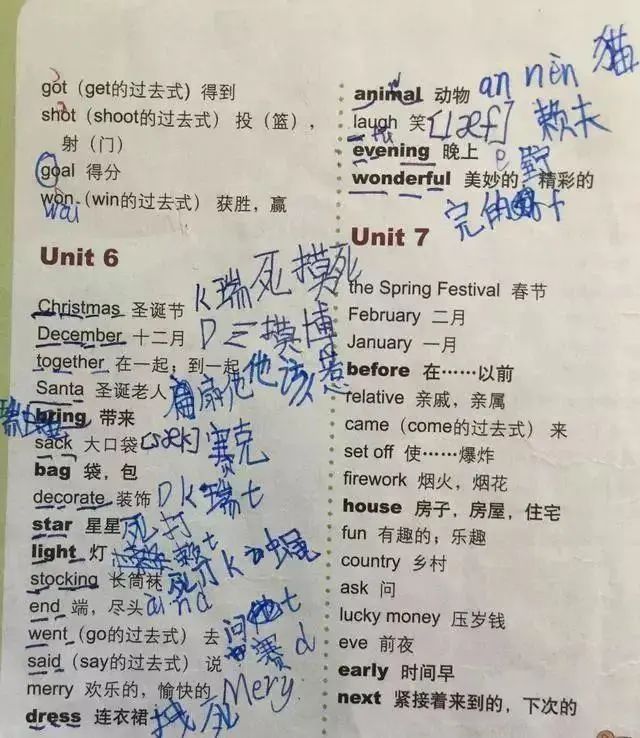 got (get的过去式) 得到
shot (shoot的过去式) 投 (篮),
射 (门)
goal 得分
won (win的过去式) 获胜, 赢
wai
Unit 6
Christmas 圣诞节 k瑞死摸死
December 十二月 D三摸博
together 在一起; 到一起 他该惹
Santa 圣诞老人 扇他
bring 带来
sack 大口袋 [sæk] 赛克
bag 袋, 包
decorate 装饰 Dk瑞t
star 星星 死打
light 灯 赖t
stocking 长筒袜 死打k
end 端, 尽头 aind
went (go的过去式) 去 问t
said (say的过去式) 说 赛d
merry 欢乐的, 愉快的 Mery
dress 连衣裙 死
animal 动物 an nèn 猫
laugh 笑 [læf] 赖夫
evening 晚上 e
wonderful 美妙的, 精彩的
完的
Unit 7
the Spring Festival 春节
February 二月
January 一月
before 在……以前
relative 亲戚, 亲属
came (come的过去式) 来
set off 使……爆炸
firework 烟火, 烟花
house 房子, 房屋, 住宅
fun 有趣的; 乐趣
country 乡村
ask 问
lucky money 压岁钱
eve 前夜
early 时间早
next 紧接着来到的, 下次的